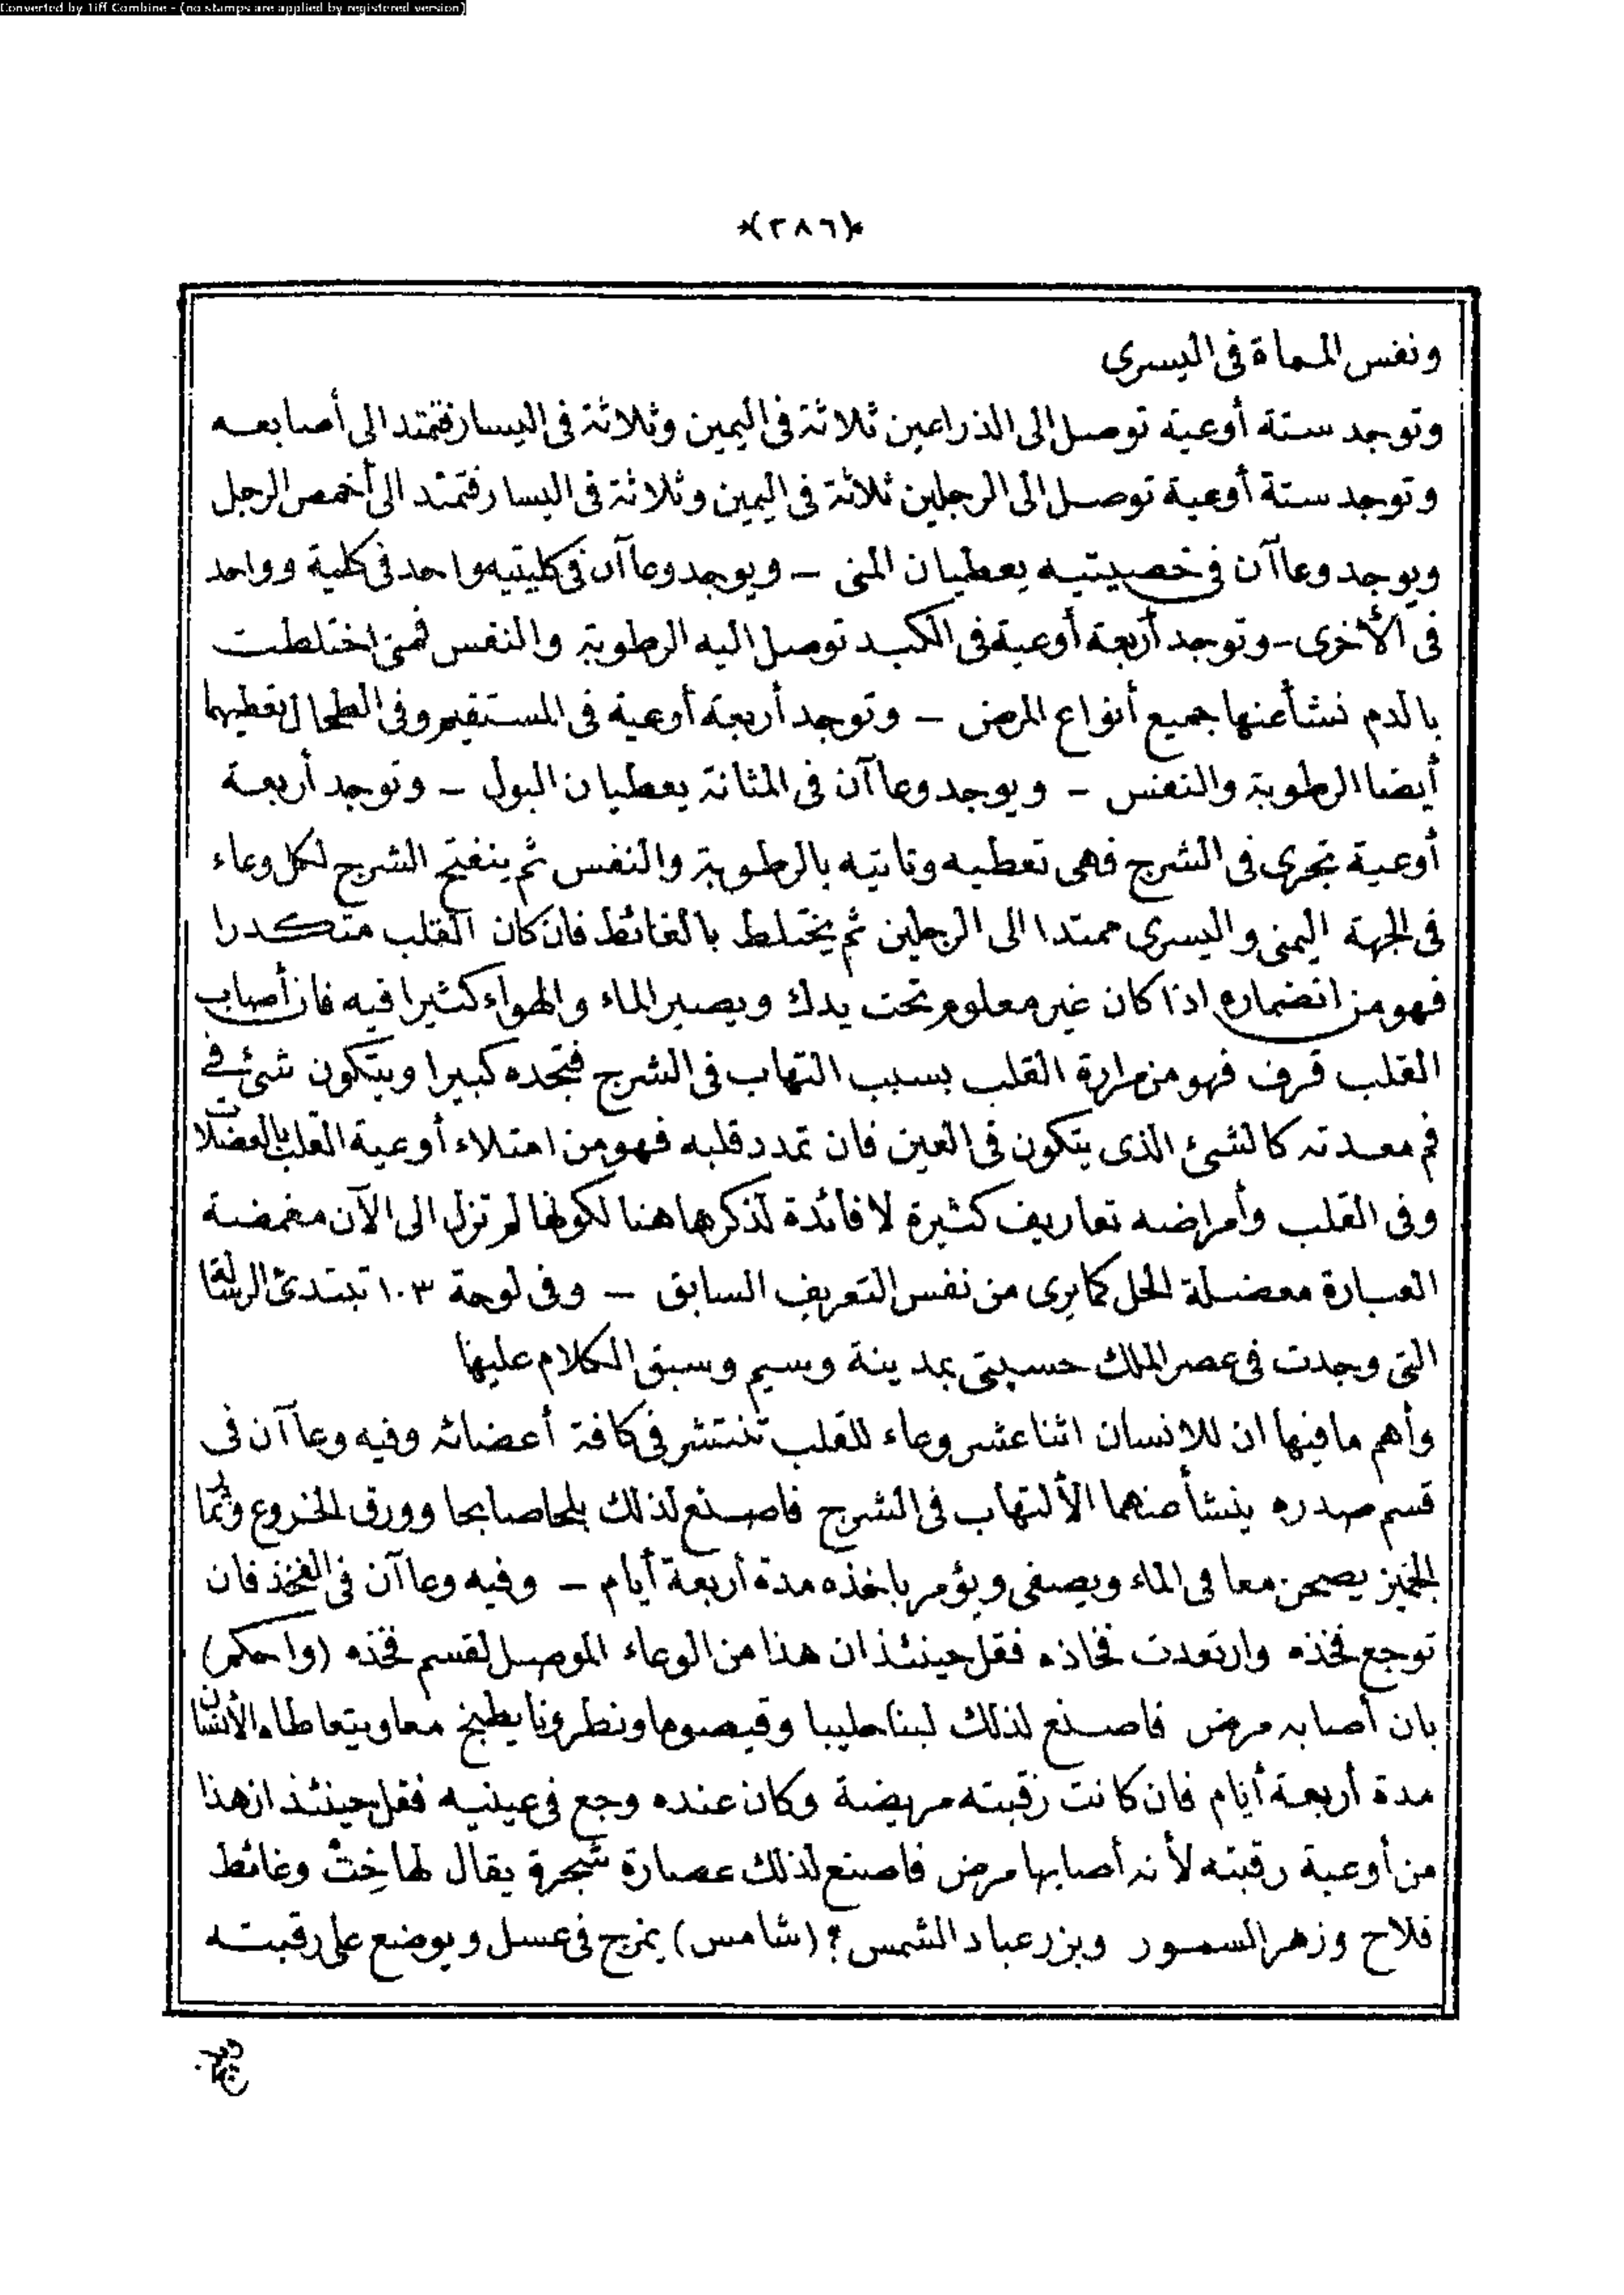 Converted by Tiff Combine - (no stamps are applied by registered version)
*(٢٨٦)*
ونفس المماة فى اليسرى
وتوجد ستة أوعية توصل الى الذراعين ثلاثة فى اليمين وثلاثة فى اليسار فتمتد الى أصابعه
وتوجد ستة أوعية توصل الى الرجلين ثلاثة فى اليمين وثلاثة فى اليسار فتمتد الى أخمص الرجل
ويوجد وعاآن فى خصيتيه يعطيان المنى – ويوجد وعاآن فى كليتيه واحد فى كلية وواحد
فى الأخرى – وتوجد أربعة أوعية فى الكبد توصل اليه الرطوبة والنفس فمتى اختلطت
بالدم نشأ عنها جميع أنواع المرض – وتوجد أربعة أوعية فى المستقيم وفى الطحال تعطيهما
أيضا الرطوبة والنفس – ويوجد وعاآن فى المثانة يعطيان البول – وتوجد أربعة
أوعية تجرى فى الشرج فهى تعطيه وتاتيه بالرطوبة والنفس ثم ينفتح الشرج لكل وعاء
فى الجهة اليمنى واليسرى ممتدا الى الرجلين ثم يختلط بالغائط فان كان القلب متكدرا
فهو من انضماره اذا كان غير معلوم تحت يدك ويصير الماء والهواء كثيرا فيه فان أصاب
القلب قرف فهو من مرارة القلب بسبب التهاب فى الشرج فتجده كبيرا ويتكون شئ فى
فم معدته كالشئ الذى يتكون فى العين فان تمدد قلبه فهو من امتلاء أوعية القلب بالعضلات
وفى القلب وأمراضه تعاريف كثيرة لا فائدة لذكرها هنا لكونها لم تزل الى الآن مغمضة
العبارة معضلة الحل كما يرى من نفس التعريف السابق – وفى لوحة ١٠٣ تبتدئ الرسالة
التى وجدت فى عصر الملك حسبتى بمدينة وسيم وسبق الكلام عليها
وأهم مافيها ان للانسان اثنا عشر وعاء للقلب تنتشر فى كافة أعضائه وفيه وعاآن فى
قسم صدره ينشأ منهما الألتهاب فى الشرج فاصنع لذلك بلحا صابحا وورق الخروع وثمار
الجميز يصحن معا فى الماء ويصفى ويؤمر باخذه مدة أربعة أيام – وفيه وعاآن فى الفخذ فان
توجع فخذه وارتعدت فخاذه فقل حينئذ ان هذا من الوعاء الموصل لقسم فخذه (واحكم)
بان أصابه مرض فاصنع لذلك لبنا حليبا وقيصوما ونطرونا يطبخ معا ويتعاطاه الأنسان
مدة أربعة أيام فان كانت رقبته مريضة وكان عنده وجع فى عينيه فقل حينئذ ان هذا
من أوعية رقبته لأنه أصابها مرض فاصنع لذلك عصارة شجرة يقال لها خِتْ وغائط
فلاح وزهر السمور وبزر عباد الشمس ؟ (شامس) يمزج فى عسل ويوضع على رقبته